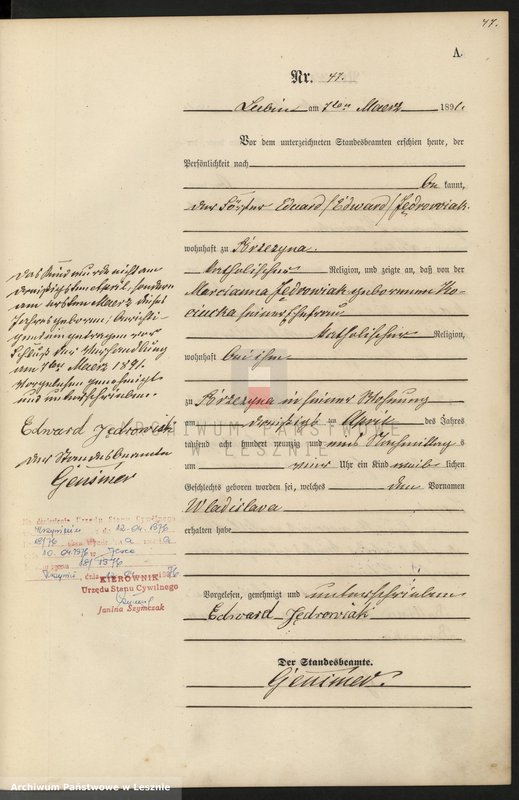 47.
A.
Nr. 47.
Lubin am 7ten Maerz 1891.
Vor dem unterzeichneten Standesbeamten erschien heute, der
Persönlichkeit nach
be kannt,
der Förster Eduard /Edward/ Jędrowiak
wohnhaft zu Brzezyna.
katholischer Religion, und zeigte an, daß von der
Marcianna Jędrowiak geborenen
seiner Ehefrau
katholischer Religion,
wohnhaft bei ihm
zu Brzezyna in seiner Wohnung
am dreißigsten April des Jahres
tausend acht hundert neunzig und eins Vormittags
um vier Uhr ein Kind weib lichen
Geschlechts geboren worden sei, welches den Vornamen
Wladislava
erhalten habe
Vorgelesen, genehmigt und unterschrieben
Edward Jędrowiak
Der Standesbeamte.
Das Kind wurde nicht am
dreißigsten April, sondern
am ersten Maerz dieses
Jahres geboren, berichti-
gend eingetragen vor
Schluß der Verhandlung
am 7ten Maerz 1891.
Vorgelesen genehmigt
und unterschrieben.
Edward Jędrowiak
Der Standesbeamte
Urzędu Stanu Cywilnego
12.04.1976
18/76
10.04.1976
18/1976
KIEROWNIK
Urzędu Stanu Cywilnego
Janina Szymczak
ARCHIWUM PAŃSTWOWE
W LESZNIE
Archiwum Państwowe w Lesznie